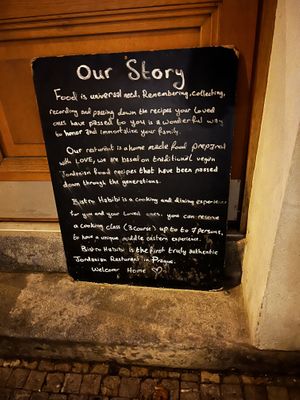 Our Story
Food is universal need, Remembering, collecting,
recording and passing down the recipes your Loved
ones have passed to you is a wonderful way
to honor and immortalize your family.
Our resturant is a home made food prepared
with LOVE, we are based on traditional vegan
Jordanian food recipes that have been passed
down through the generations.
Bistro Habibi is a cooking and dining experience
for you and your Loved ones. you can reserve
a cooking class (3 course) up to to 7 persons,
to have a unique middle eastern experience.
Bistro Habibi is the first truly authentic
Jordanian Resturant in Prague.
Welcome Home ♡